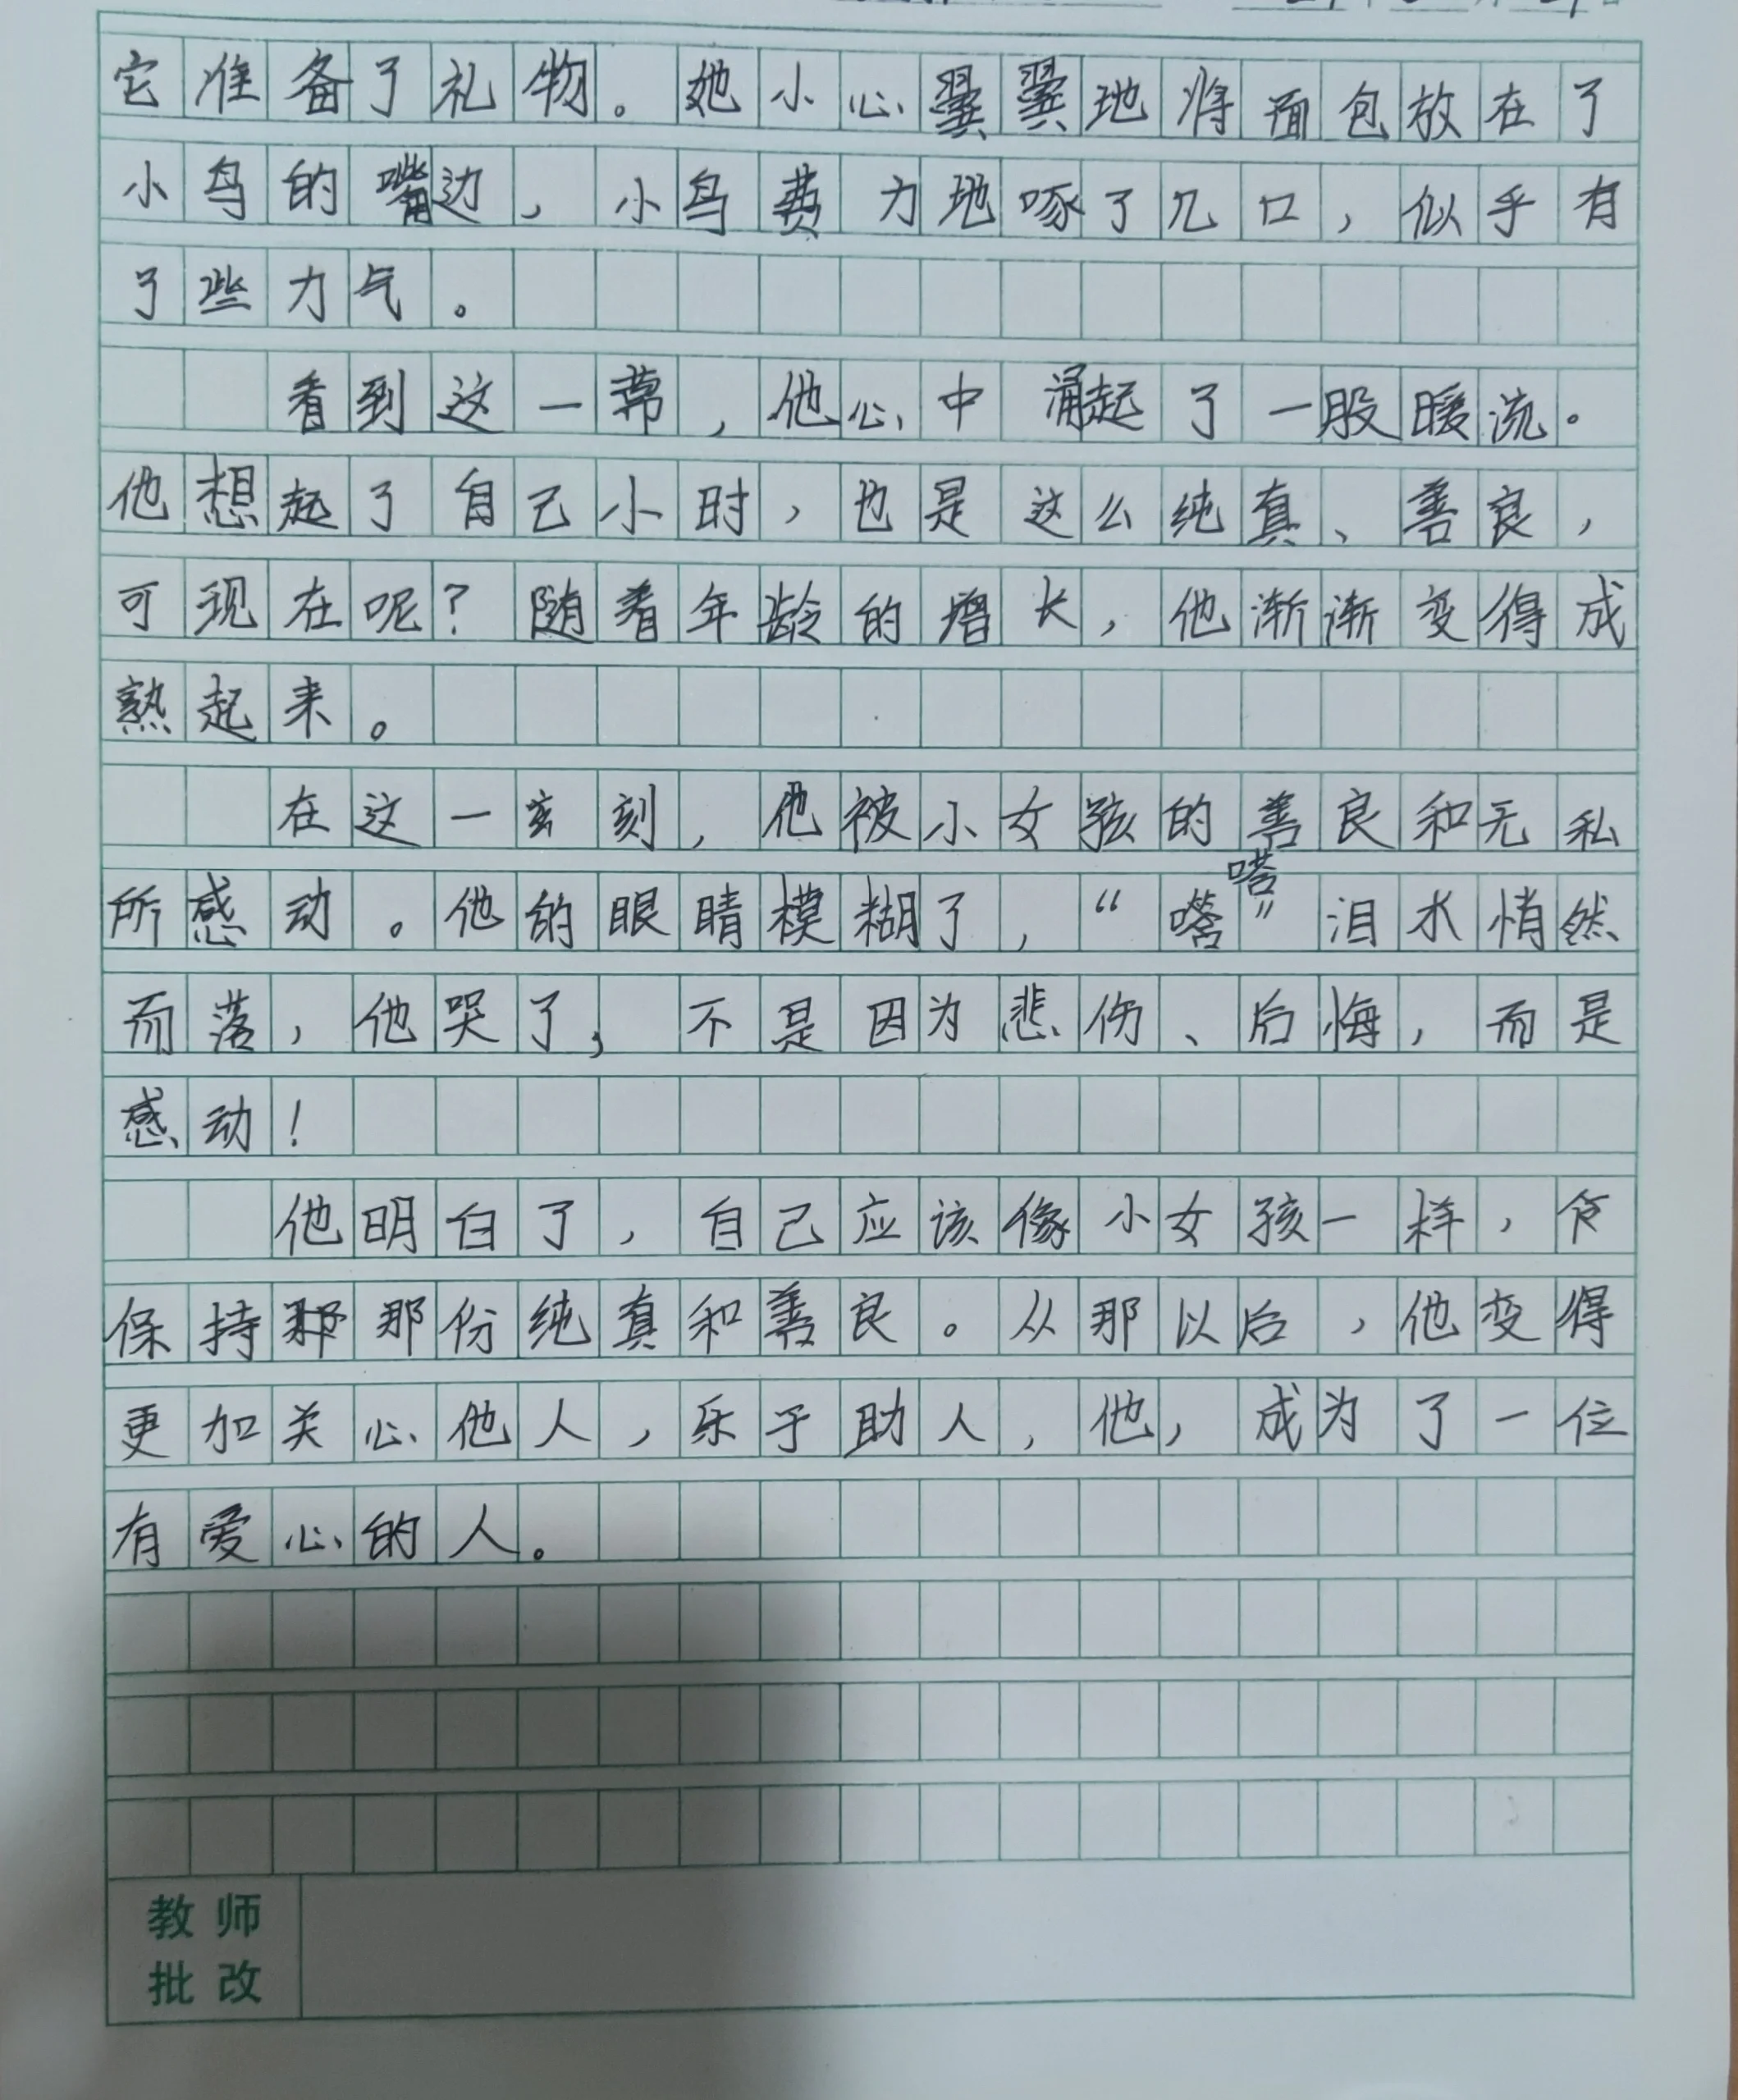 它准备了礼物。她小心翼翼地将面包放在了
小鸟的嘴边，小鸟费力地啄了几口，似乎有
了些力气。
看到这一幕，他心中涌起了一股暖流。
他想起了自己小时，也是这么纯真、善良，
可现在呢？随着年龄的增长，他渐渐变得成
熟起来。
在这一刻，他被小女孩的善良和无私
所感动。他的眼睛模糊了，“嗒嗒”泪水悄然
而落，他哭了，不是因为悲伤、后悔，而是
感动！
他明白了，自己应该像小女孩一样，
保持那份纯真和善良。从那以后，他变得
更加关心他人，乐于助人，他，成为了一位
有爱心的人。
教师
批改